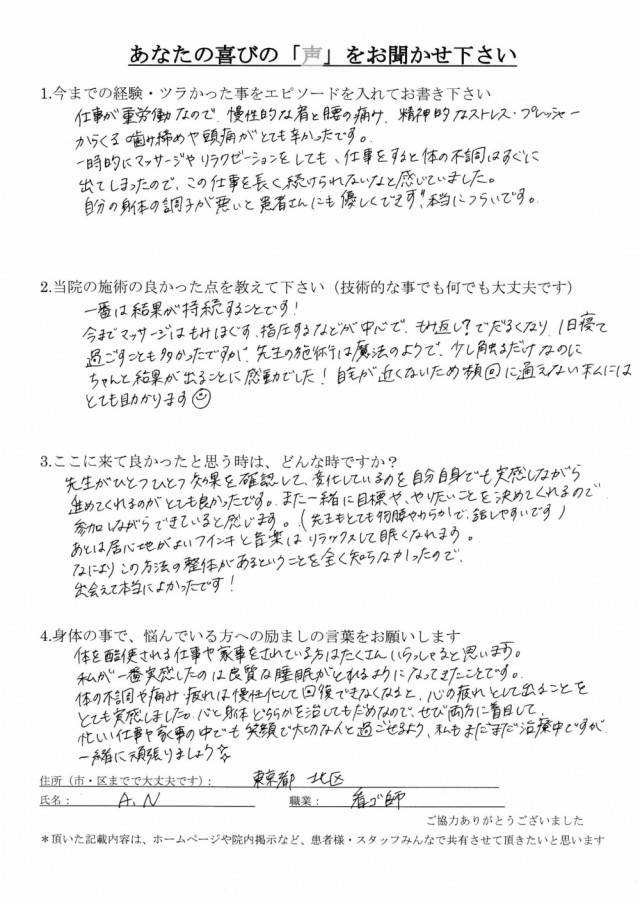 あなたの喜びの「声」をお聞かせ下さい
1.今までの経験・ツラかった事をエピソードを入れてお書き下さい
仕事が重労働なので、慢性的な肩と腰の痛み、精神的なストレス・プレッシャー
からくる噛み締めや頭痛がとても辛かったです。
一時的にマッサージやリラクゼーションをしても、仕事をすると体の不調はすぐに
出てしまったので、この仕事を長く続けられないなと感じていました。
自分の身体の調子が悪いと患者さんにも優しくできず、本当につらいです。
2.当院の施術の良かった点を教えて下さい（技術的な事でも何でも大丈夫です）
一番は結果が持続することです！
今までマッサージはもみほぐす、指圧するなどが中心で、もみ返し？でだるくなり、1日寝て
過ごすことも多かったですが、先生の施術は魔法のようで、少し触るだけなのに
ちゃんと結果が出ることに感動でした！自宅が近くないため頻回に通えない私には
とても助かります☺
3.ここに来て良かったと思う時は、どんな時ですか？
先生がひとつひとつ効果を確認して、変化しているのを自分自身でも実感しながら
進めてくれるのがとても良かったです。また一緒に目標や、やりたいことを決めてくれるので
参加しながらできていると感じます。（先生もとても物腰やわらかで、話しやすいです）
あとは居心地がよいフインキと音楽はリラックスして眠くなれます。
なによりこの方法の整体があるということを全く知らなかったので、
出会えて本当によかったです！
4.身体の事で、悩んでいる方への励ましの言葉をお願いします
体を酷使される仕事や家事をされている方はたくさんいらっしゃると思います。
私が一番実感したのは良質な睡眠がとれるようになってきたことです。
体の不調や痛み、疲れは慢性化して回復できなくなると、心の疲れとして出ることを
とても実感しました。心と身体どちらかを治してもだめなので、ぜひ両方に着目して、
忙しい仕事や家事の中でも笑顔で大切な人と過ごせるよう、私もまだまだ治療中ですが
一緒に頑張りましょう☆
住所（市・区までで大丈夫です）： 東京都 北区
氏名： A.N 職業： 看ゴ師
ご協力ありがとうございました
＊頂いた記載内容は、ホームページや院内掲示など、患者様・スタッフみんなで共有させて頂きたいと思います